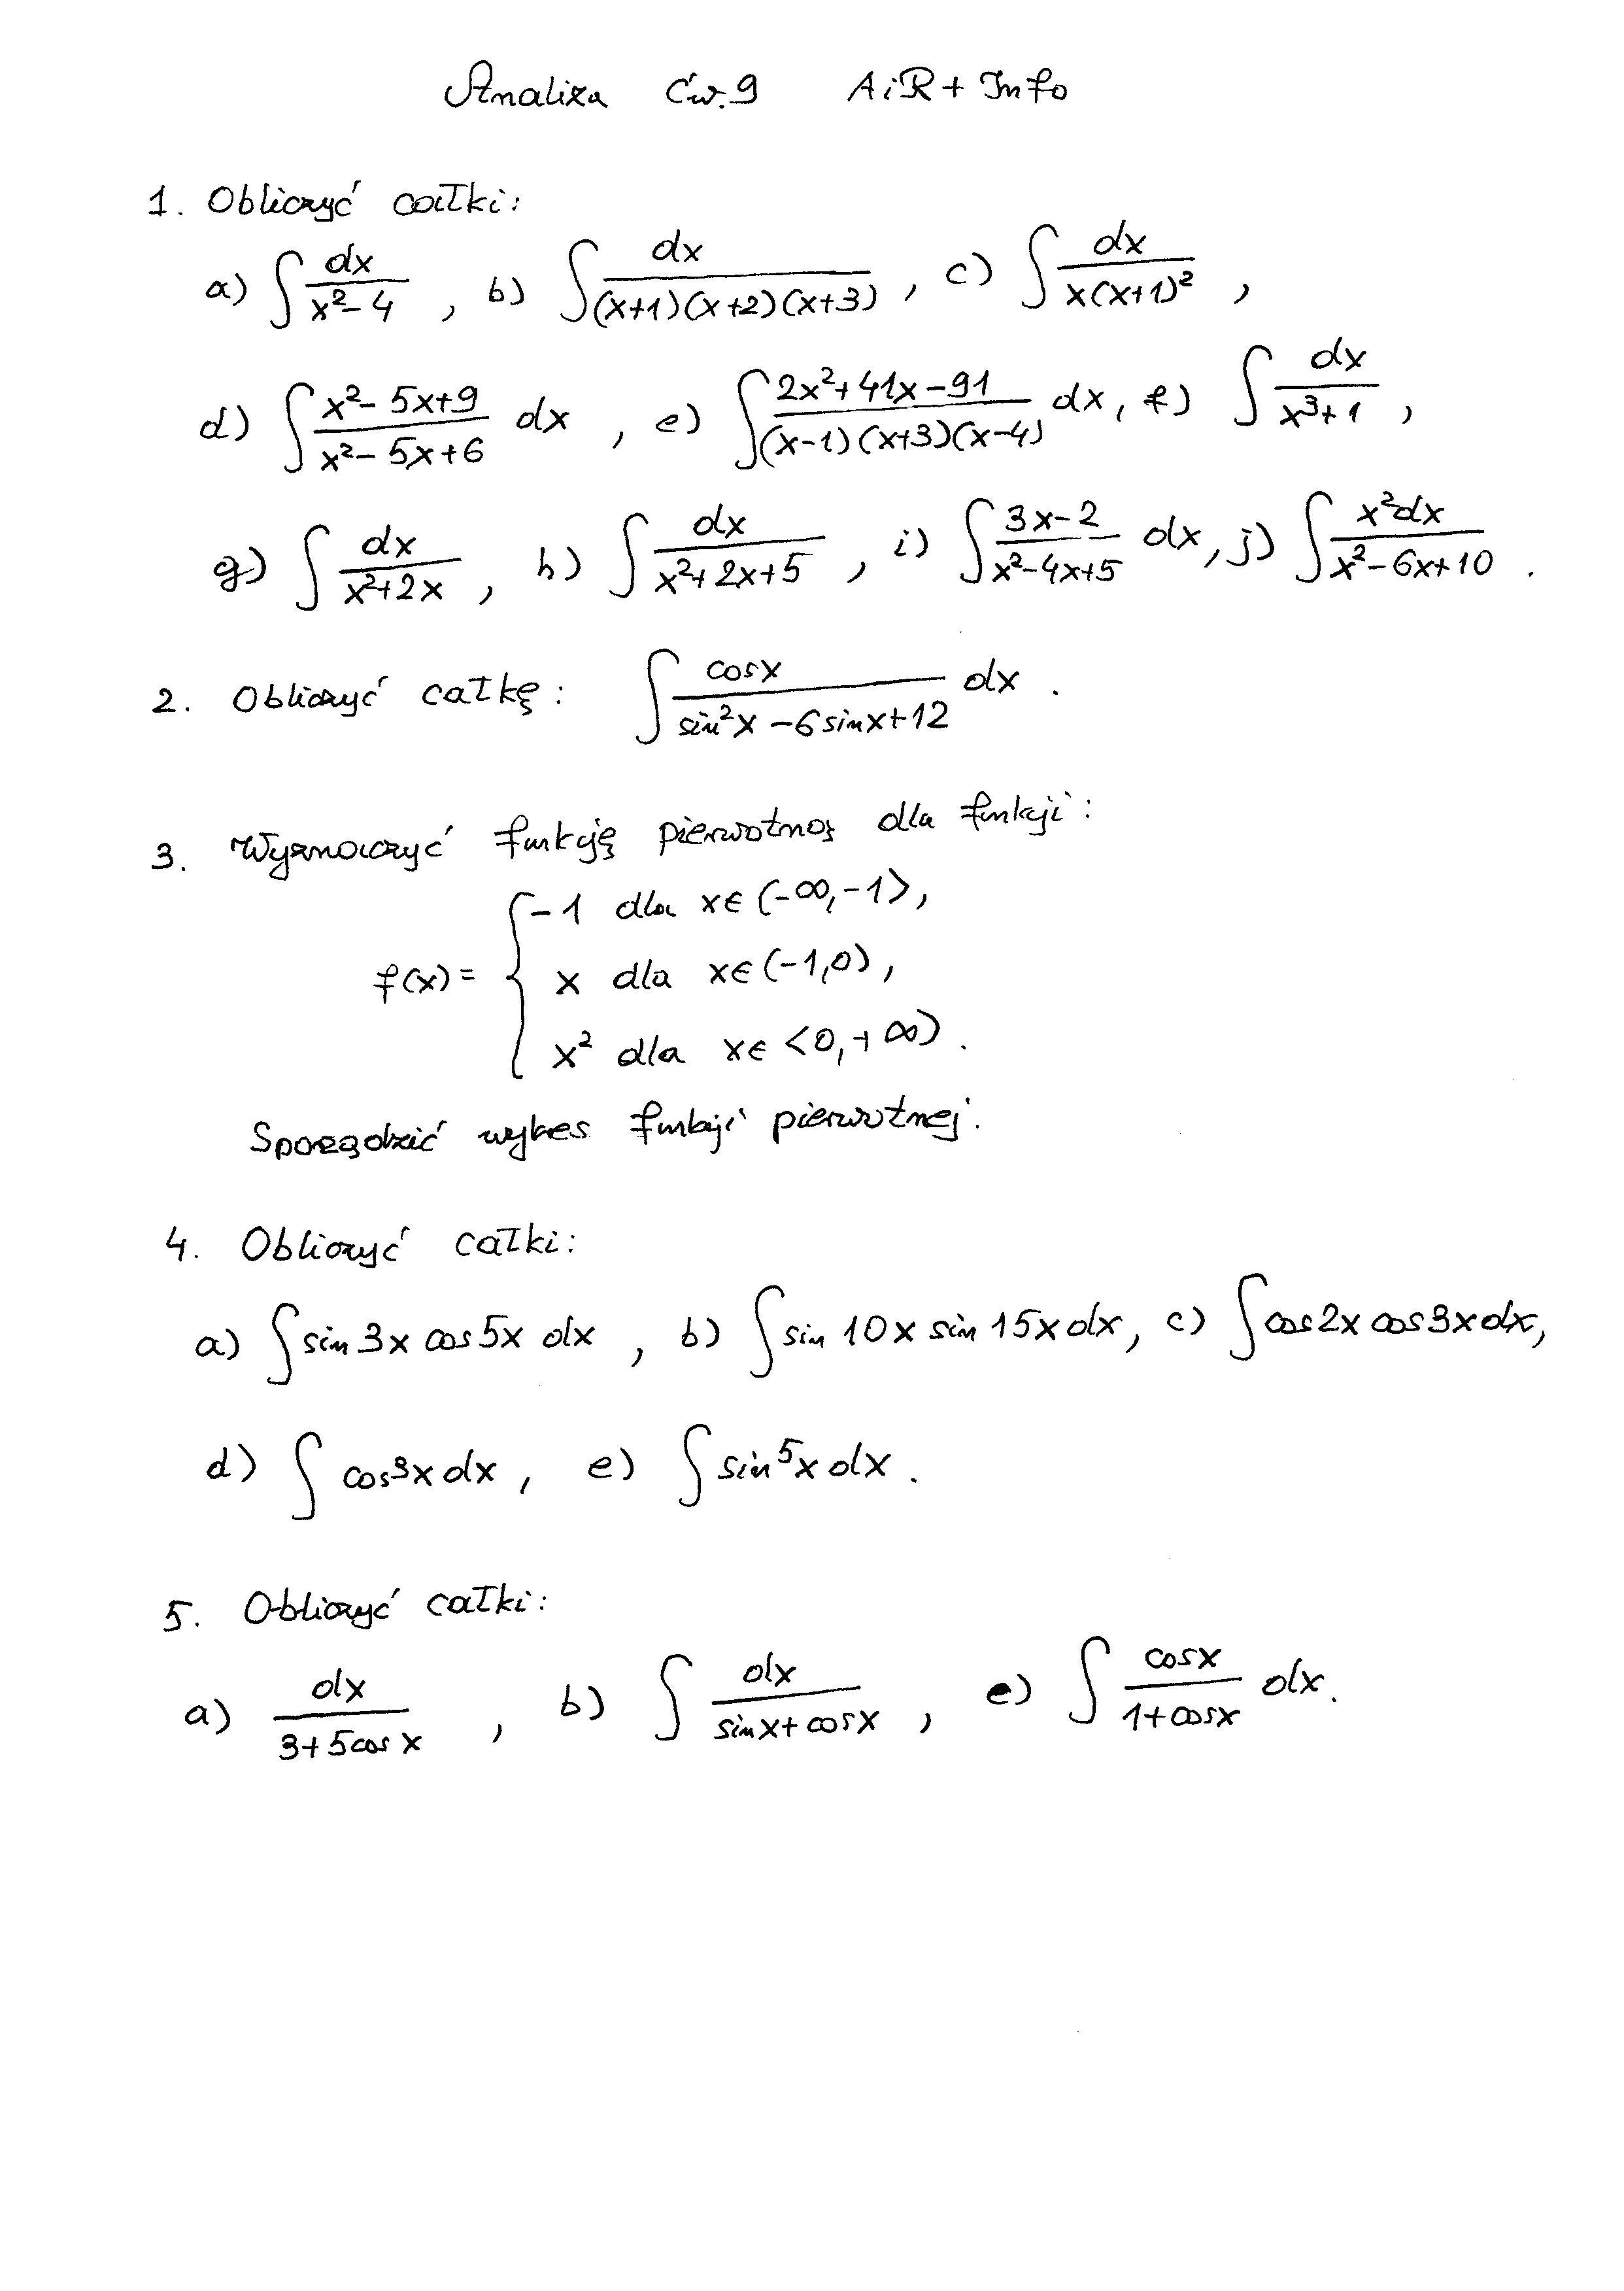 Analiza Ćw. 9 AiR + Info
1. Obliczyć całki:
a) ∫ dx/(x²-4) , b) ∫ dx/((x+1)(x+2)(x+3)) , c) ∫ dx/(x(x+1)²) ,
d) ∫ (x²-5x+9)/(x²-5x+6) dx , e) ∫ (2x²+41x-91)/((x-1)(x+3)(x-4)) dx, f) ∫ dx/(x³+1) ,
g) ∫ dx/(x²+2x) , h) ∫ dx/(x²+2x+5) , i) ∫ (3x-2)/(x²-4x+5) dx, j) ∫ x²dx/(x²-6x+10) .
2. Obliczyć całkę: ∫ cosx/(sin²x -6sinx+12) dx .
3. Wyznaczyć funkcję pierwotną dla funkcji:
f(x) = { -1 dla x∈(-∞,-1>,
x dla x∈(-1,0),
x² dla x∈<0,+∞).
Sporządzić wykres funkcji pierwotnej.
4. Obliczyć całki:
a) ∫ sin 3x cos 5x dx , b) ∫ sin 10x sin 15x dx, c) ∫ cos 2x cos 3x dx,
d) ∫ cos³x dx, e) ∫ sin⁵x dx .
5. Obliczyć całki:
a) dx/(3+5cos x) , b) ∫ dx/(sinx+cosx) , e) ∫ cosx/(1+cosx) dx.